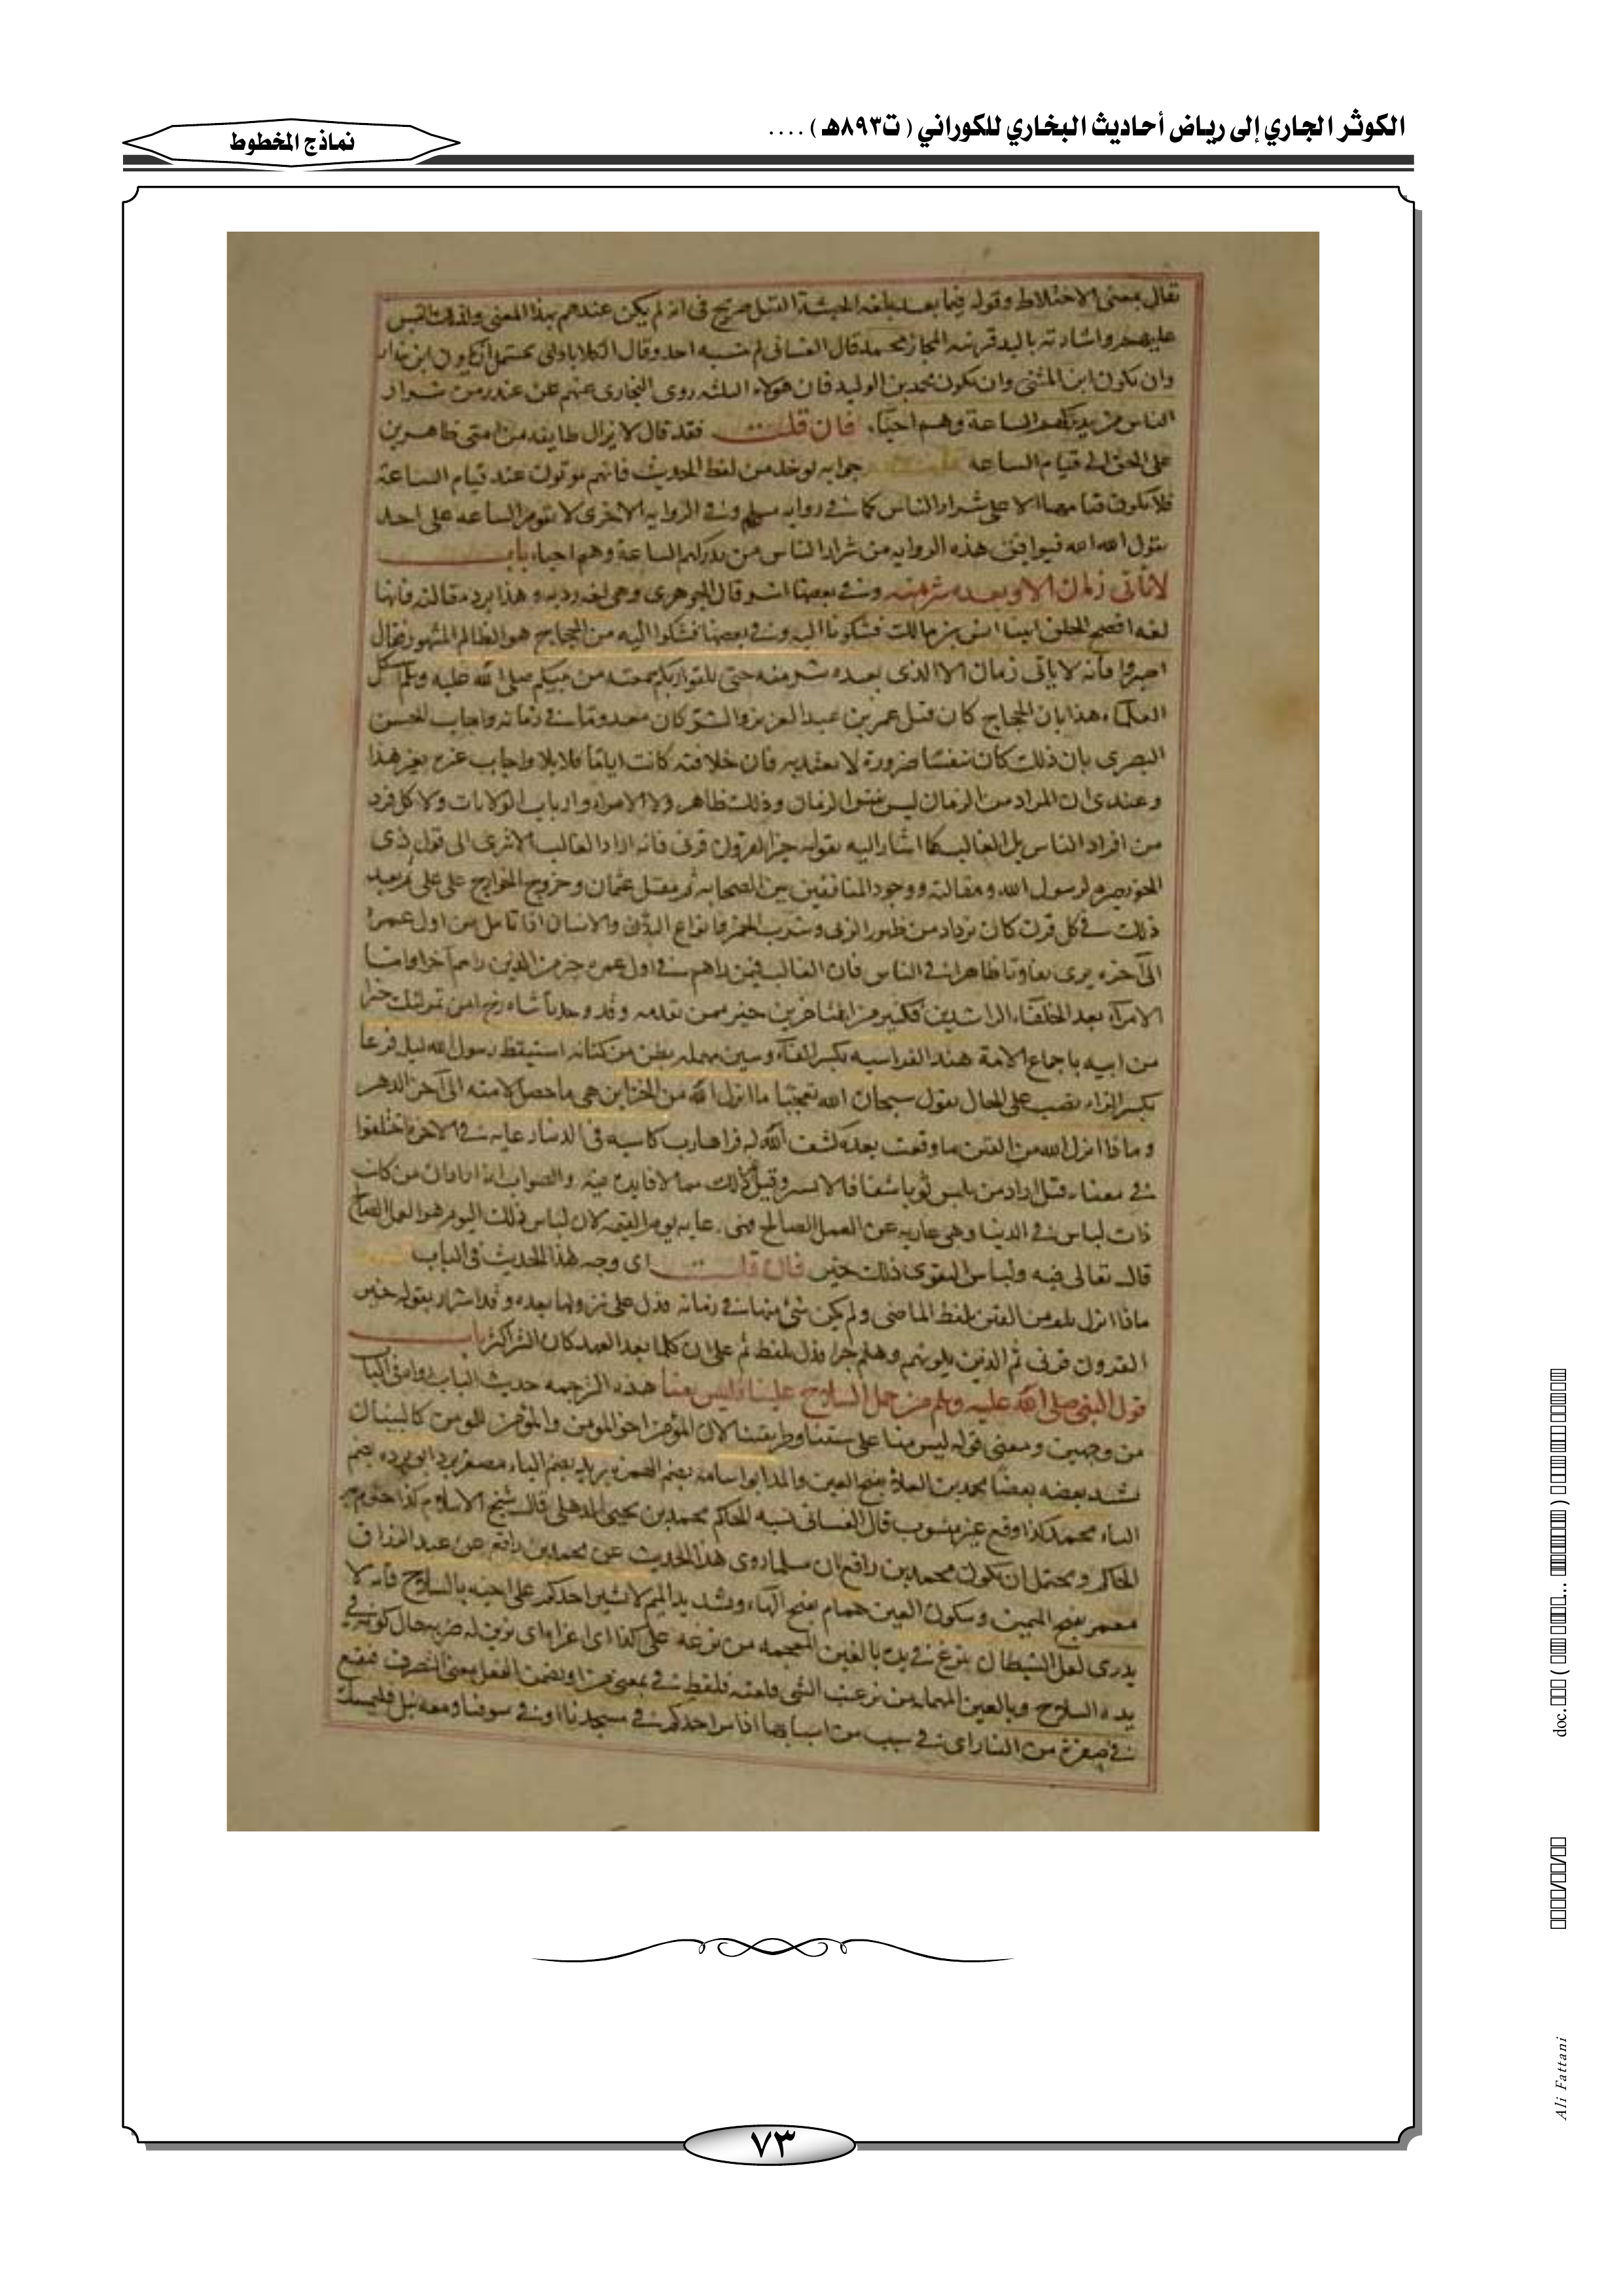 الكوثر الجاري إلى رياض أحاديث البخاري للكوراني ( ت٨٩٣هـ ) ....
نماذج المخطوط
يقال بمعنى الاختلاط وقوله فيما بعد بلغة الحبشة القتل صريح في انه لم يكن عندهم بهذا المعنى
واشارته باليد قرينة المجاز محمد قال الغساني لم ينسبه احد وقال الكلاباذي يحتمل ان يكون ابن بندار
وان يكون ابن المثنى وان يكون محمد بن الوليد فان هولاء الثلثه روى البخاري عنهم عن غندر من شرار
الناس من يدركهم الساعة وهم احياء فان قلت فقد قال لا يزال طايفه من امتي ظاهرين
على الحق الى قيام الساعه جوابه يوخذ من لفظ الحديث فانهم يموتون عند قيام الساعة
فلا يكون قيامها الا على شرار الناس كما في روايه مسلم وفي الروايه الاخرى لا تقوم الساعه على احد
يقول الله الله فيوافق هذه الروايه من شرار الناس من يدركهم الساعة وهم احياء باب
لا ياتي زمان الا وبعده شر منه وفي بعضها اشر قال الجوهري وهي لغه رديه وهذا يرد مقالته فانها
لغه افصح الخلق انس بن مالك فشكونا اليه وفي بعضها فشكوا اليه من الحجاج هو الظالم المشهور فقال
اصبروا فانه لا ياتي زمان الا الذي بعده شر منه حتى تلقوا ربكم سمعته من نبيكم صلى الله عليه وسلم
هذا بان الحجاج كان قبل عمر بن عبد العزيز والشر كان معدوما في زمانه واجاب الحسن
البصري بان ذلك كان ضرورة لا يعتد به فان خلافته كانت اياما قلايلا واجاب غيره بغير هذا
وعندي ان المراد من الزمان ليس الزمان وذلك ظاهر ولا الامراء وارباب الولايات ولا كل فرد
من افراد الناس بل الغالب كما اشار اليه بقوله خير القرون قرني فانه اراد الغالب الا ترى الى قول ذي
الخويصرة لرسول الله ومقالته ووجود المنافقين بين الصحابه ثم مقتل عثمان وخروج الخوارج على علي ثم بعد
ذلك في كل قرن كان يزداد من ظهور الزنى وشرب الخمر وانواع والانسان اذا تامل من اول عمره
الى آخره يرى تفاوتا ظاهرا في الناس فان الغالب فيمن راهم في اول عمره خير من الذين راهم آخرا واما
الامراء بعد الخلفاء الراشدين فكثير من المتاخرين خير ممن تقدمه وقد وجدنا شاه رخ ابن تمرلنك خيرا
من ابيه باجماع الامة هند الفراسيه بكسر الفاء وسين مهمله بطن من كنانه استيقظ رسول الله ليلة فزعا
بكسر الزاء نصب على الحال يقول سبحان الله تعجبا ما انزل الله من الخزاين هي ما حصل لامته الى آخر الدهر
وماذا انزل الله من الفتن ما وقعت بعده كشف الله له فراها رب كاسيه في الدنيا عاريه في الاخرة اختلفوا
في معناه قيل اراد من يلبس ثوبا شفافا لا يستر وقيل مما لا فايده فيه والصواب انه اراد ان من كانت
ذات لباس في الدنيا وهي عاريه عن العمل الصالح فهي عاريه يوم القيمه لان لباس ذلك اليوم هو العمل الصالح
قال تعالى فيه ولباس التقوى ذلك خير فان قلت اي وجه لهذا الحديث في الباب
ماذا انزل من الفتن بلفظ الماضي ولم يكن شي منها في زمانه فدل على نزولها بعده وقد اشار بقوله خير
القرون قرني ثم الذين يلونهم وهلم جرا فدل بلفظ ثم على ان كلما بعد العهد كان الشر اكثر باب
قول النبي صلى الله عليه وسلم من حمل السلاح علينا فليس منا هذه الترجمه حديث الباب
من وجهين ومعنى قوله ليس منا على سنتنا وطريقتنا لان المؤمن اخو المومن والمؤمن للمومن كالبنيان
يشد بعضه بعضا محمد بن العلاء بفتح العين والمد ابو اسامه بضم الهمزه بريد بضم الباء مصغر برد ابو برده بضم
الباء محمد كذا وقع غير منسوب قال الغساني نسبه الحاكم محمد بن يحيى الذهلي قال شيخ الاسلام كذا
الحاكم ويحتمل ان يكون محمد بن رافع فان مسلما روى هذا الحديث عن محمد بن رافع عن عبد الرزاق
معمر بفتح الميمين وسكون العين همام بفتح الهاء وتشديد الميم لا يشير احدكم على اخيه بالسلاح فانه لا
يدرى لعل الشيطان ينزغ في يده بالغين المعجمه من نزغه على كذا اي اغراه اي يزين له ضربه حال كونه في
يده السلاح وبالعين المهمله من نزعت الشي قلعته فلفظ في بمعنى من او يضمن الفعل معنى التصرف فيقع
في حفرة من النار اي في سبب من اسبابها اذا مر احدكم في مسجدنا او في سوقنا ومعه نبل فليمسك
٧٣
Ali Fattani
.doc